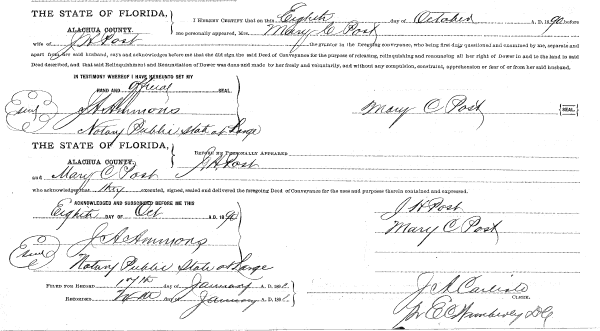 THE STATE OF FLORIDA,
ALACHUA COUNTY.
I HEREBY CERTIFY that on this Eighth day of October A. D. 1890 before
me personally appeared, Mrs. Mary C Post
wife of J H Post the grantor in the foregoing conveyance, who being first duly questioned and examined by me, separate and
apart from her said husband, says and acknowledges before me that she did sign the said Deed of Conveyance for the purpose of releasing, relinquishing and renouncing all her right of Dower in and to the land in said
Deed described, and that said Relinquishment and Renunciation of Dower was done and made by her freely and voluntarily, and without any compulsion, constraint, apprehension or fear of or from her said husband.
IN TESTIMONY WHEREOF I HAVE HEREUNTO SET MY
HAND AND official SEAL.
Seal J A Ammons Mary C Post SEAL
Notary Public State at Large
THE STATE OF FLORIDA,
ALACHUA COUNTY.
BEFORE ME PERSONALLY APPEARED J H Post
and Mary C Post
who acknowledge that they executed, signed, sealed and delivered the foregoing Deed of Conveyance for the uses and purposes therein contained and expressed.
ACKNOWLEDGED AND SUBSCRIBED BEFORE ME THIS
Eighth DAY OF Oct A. D. 1890
J H Post
Mary C Post
Seal J A Ammons
Notary Public State at Large
FILED FOR RECORD 17th day of January A. D. 189
RECORDED day of January A. D. 189
J A Carlisle
CLERK.
Wimberly DC